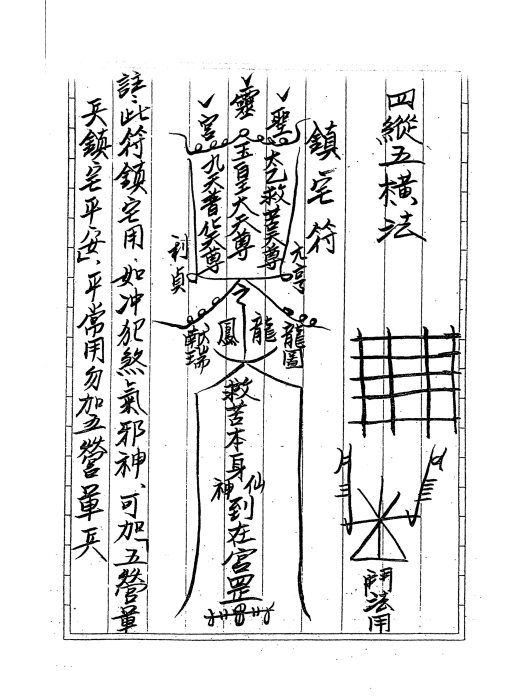 四縱五橫法
鬪法用
鎮宅符
聖
靈
宮
太乙救苦天尊
玉皇大天尊
九天普化天尊
元亨
利貞
龍圖
龍
鳳
献瑞
救苦本身
神仙
到在宮罡
註:此符鎮宅用、如冲犯煞氣邪神、可加「五營軍
兵鎮宅平安」、平常用勿加五營軍兵